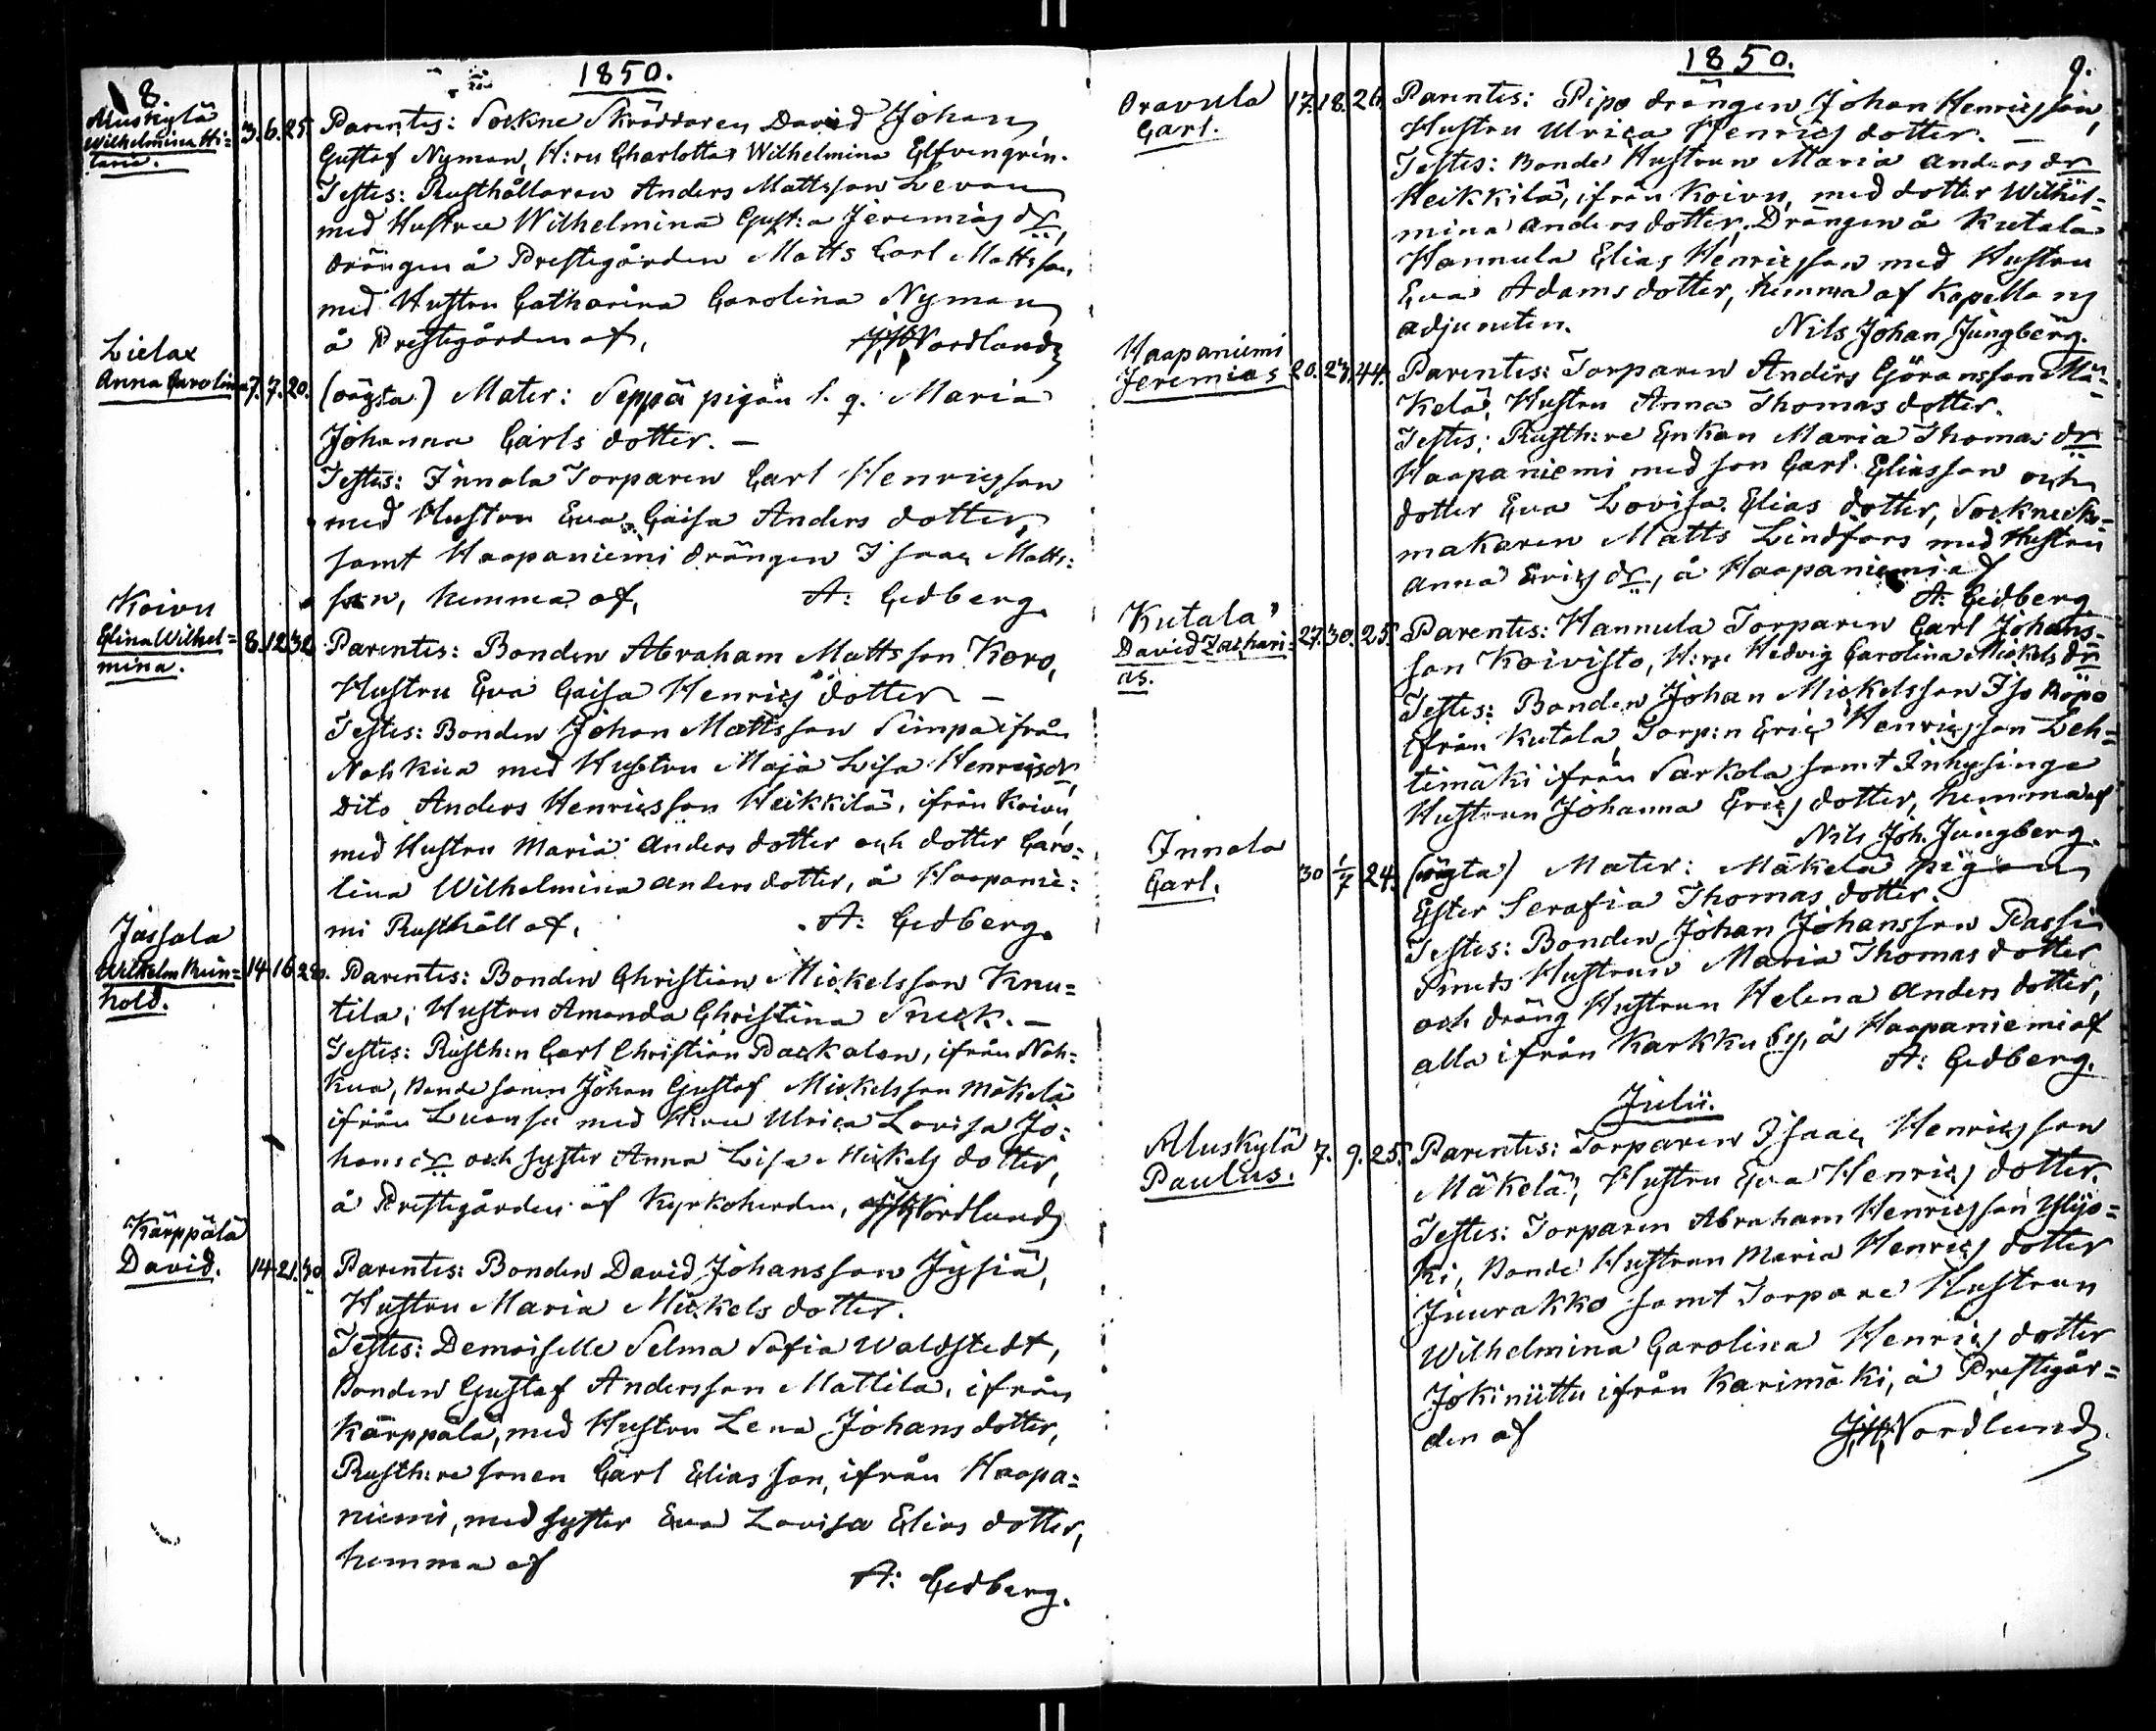 8.
1850.
Muskylä
Wilhelmina Hi-
laria.
3. 6. 25.
Parentes: Sockne Skräddaren David Johan
Gustaf Nyman, H:ru Charlotta Wilhelmina Elfvengrén.
Testes: Rusthållaren Anders Mattsson Levon
med Hustru Wilhelmina Gust:a Jeremiæ dr,
drängen å Prestegården Matts Carl Mattsson
med Hustru Catharina Carolina Nyman
å Prestegården af, Nordlund
Lielax
Anna Carolina
7. 7. 20.
(oägta) Mater: Seppä pigan l. q. Maria
Johanna Carls dotter. —
Testes: Innala Torparen Carl Henricsson
med Hustru Eva Caisa Anders dotter,
samt Haapaniemi drängen Isaac Matts-
son, hemma af, A: Cedberg.
Koivu
Elina Wilhel-
mina.
8. 12. 32.
Parentes: Bonden Abraham Mattsson Koro,
Hustru Eva Caisa Henrics dotter —
Testes: Bonden Johan Mattsson Simpa ifrån
Nohkua med Hustru Maja Lisa Henricsdr,
Dito Anders Henricsson Heikkilä, ifrån Koivu,
med Hustru Maria Anders dotter och dotter Caro-
lina Wilhelmina Anders dotter, å Haapanie-
mi Rusthåll af, A: Cedberg.
Jassala
Wilhelm Rein-
hold.
14. 16.
Parentes: Bonden Christian Mickelsson Knu-
tila, Hustru Amanda Christina Sneck. —
Testes: Rusth:n Carl Christian Packalen, ifrån Noh-
kua, Bonde sonen Johan Gustaf Mickelsson Mäkelä
ifrån med H:ru Ulrica Lovisa Jo-
hans dr och syster Anna Lisa Mickels dotter,
å Prestegården af Kyrkoherden, Nordlund
Kärppälä
David.
14. 21. 30.
Parentes: Bonden David Johansson Jysiä,
Hustru Maria Mickels dotter.
Testes: Demoiselle Selma Sofia Waldstedt,
Bonden Gustaf Andersson Mattila, ifrån
Kärppälä, med Hustru Lena Johans dotter,
Rusth:re sonen Carl Eliasson, ifrån Haapa-
niemi, med syster Eva Lovisa Elias dotter,
hemma af A: Cedberg.
1850.
9.
Oravula
Carl.
17. 18. 26.
Parentes: Pipo drängen Johan Henricsson,
Hustru Ulrica Henrics dotter. —
Testes: Bonde Hustrun Maria Anders dr
Heikkilä, ifrån Koivu, med dotter Wilhel-
mina Anders dotter, Drängen å Kutala
Hannula Elias Henricsson med Hustru
Eva Adams dotter, hemma af Kapellans
adjuncten. Nils Johan Jungberg.
Haapaniemi
Jeremias
20. 23. 44.
Parentes: Torparen Anders Göransson Mä-
kelä, Hustru Anna Thomas dotter.
Testes: Rusth:re Enkan Maria Thomas dr
Haapaniemi med son Carl Eliasson och
dotter Eva Lovisa Elias dotter, Socknesko-
makaren Matts Lindfors med Hustru
Anna Erics dr, å Haapaniemi af
A: Cedberg.
Kutala
David Zachari-
as.
27. 30. 25.
Parentes: Hannula Torparen Carl Johans-
son Koivisto, H:ru Hedvig Carolina Mickels dr
Testes: Bonden Johan Mickelsson Iso
ifrån Kutala, Torp:n Eric Henricsson Leh-
timäki ifrån Sarkola samt Inhysinge
Hustrun Johanna Erics dotter, hemma af
Nils Joh. Jungberg.
Innala
Carl.
30 1/7 24.
(oägta) Mater: Mäkelä pigan
Ester Serafia Thomas dotter.
Testes: Bonden Johan Johansson Rassi
Hustrun Maria Thomas dotter
och dräng Hustrun Helena Anders dotter,
alla ifrån Karkku by, å Haapaniemi af
A: Cedberg.
Julii.
Muskylä
Paulus.
7. 9. 25.
Parentes: Torparen Isaac Henricsson
Mäkelä, Hustru Eva Henrics dotter.
Testes: Torparen Abraham Henricsson Ylijo-
ki, Bonde Hustrun Maria Henrics dotter
Juurakko samt Torpare Hustrun
Wilhelmina Carolina Henrics dotter
Jokiniittu ifrån Karimäki, å Prestegår-
den af Nordlund